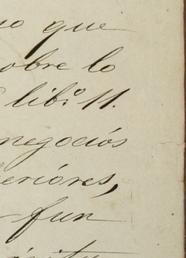 que
sobre lo
lib.º 11.
negociós
erióres,
fun